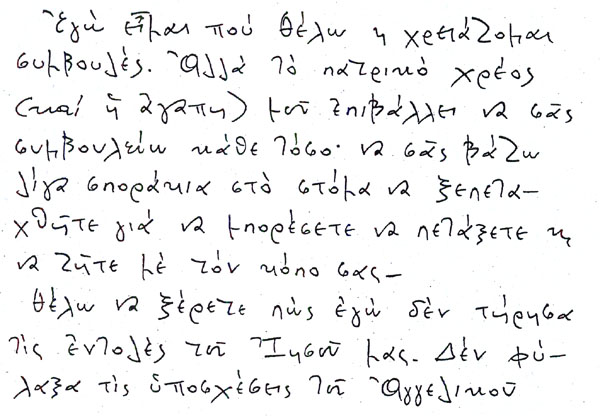 Ἐγὼ εἶμαι ποὺ θέλω ἢ χρειάζομαι
συμβουλές. Ἀλλὰ τὸ πατρικὸ χρέος
(καὶ ἡ ἀγάπη) μοῦ ἐπιβάλλει νὰ σᾶς
συμβουλεύω κάθε τόσο· νὰ σᾶς βάζω
λίγα σποράκια στὸ στόμα νὰ ξεπετα-
χθῆτε γιὰ νὰ μπορέσετε νὰ πετάξετε κ
νὰ ζῆτε μὲ τὸν κόπο σας—
θέλω νὰ ξέρετε πὼς ἐγὼ δὲν τήρησα
τὶς ἐντολὲς τοῦ Ἰησοῦ μας. Δὲν φύ-
λαξα τὶς ὑποσχέσεις τοῦ Ἀγγελικοῦ